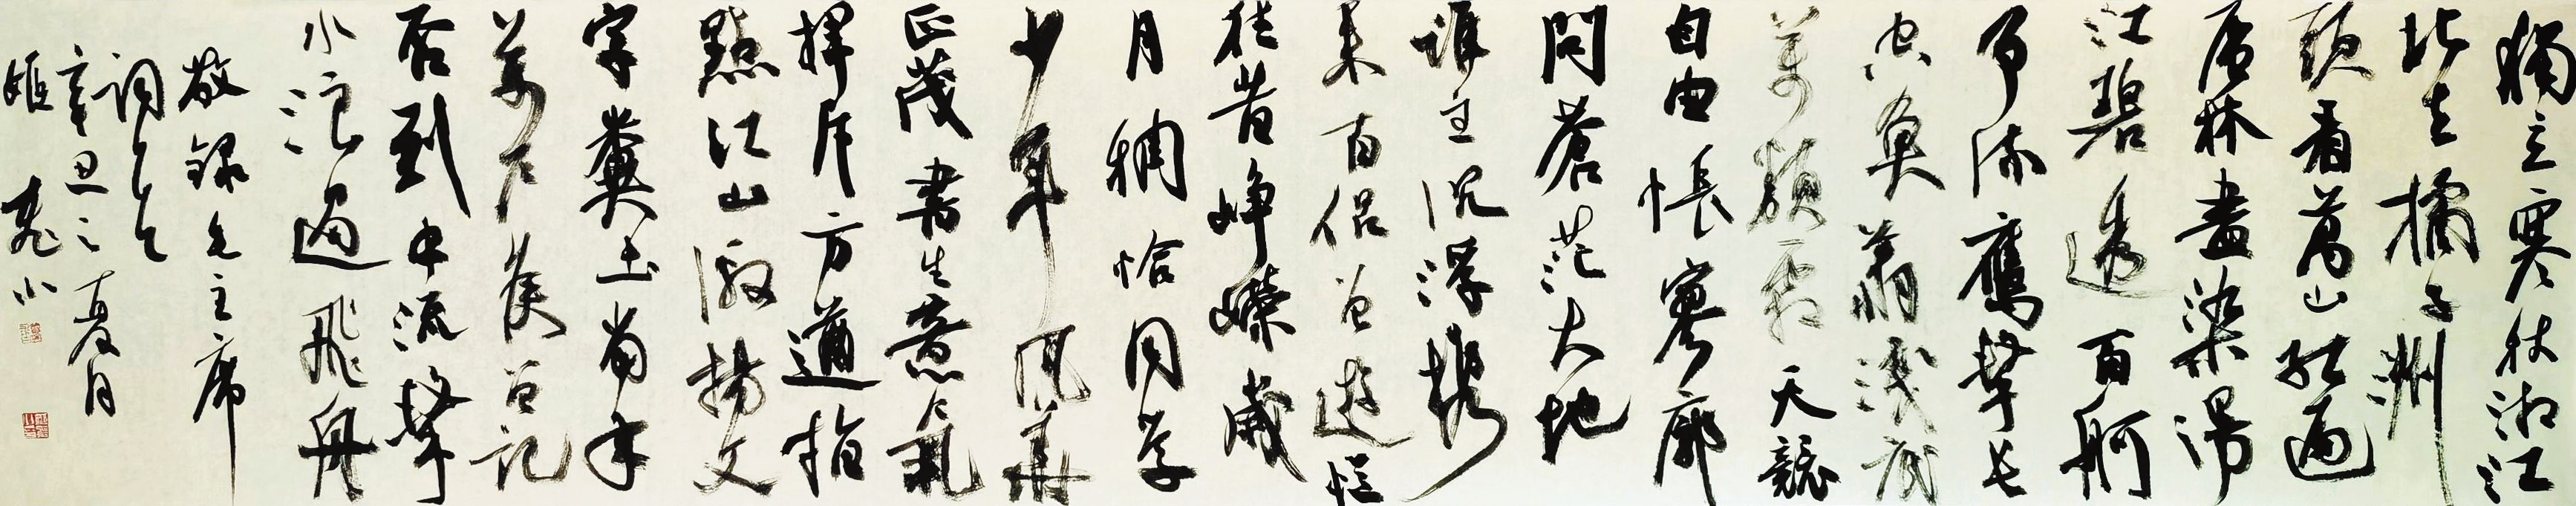 獨立寒秋湘江
北去橘子洲
頭看萬山紅遍
層林盡染漫
江碧透百舸
爭流鷹擊長
空魚翔淺底
萬類霜天競
自由悵寥廓
問蒼茫大地
誰主沉浮攜
來百侶曾遊憶
往昔崢嶸歲
月稠恰同學
少年風華
正茂書生意氣
揮斥方遒指
點江山激揚文
字糞土當年
萬戶侯曾記
否到中流擊
水浪遏飛舟
敬錄毛主席
詞
辛丑之夏月